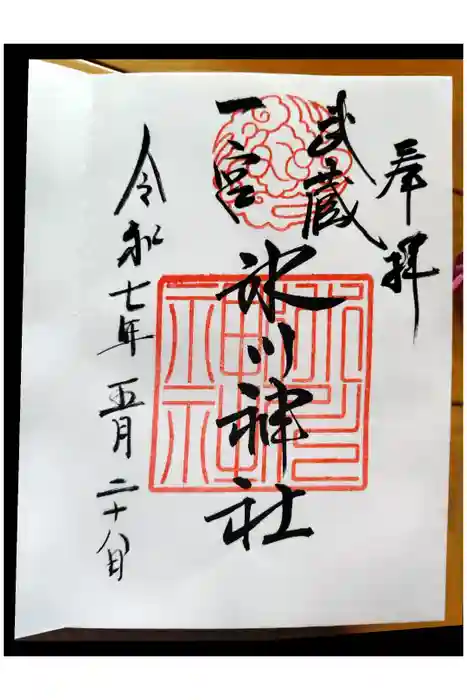 奉拝
武蔵
一宮
氷川神社
令和七年五月二十八日
氷川
神社